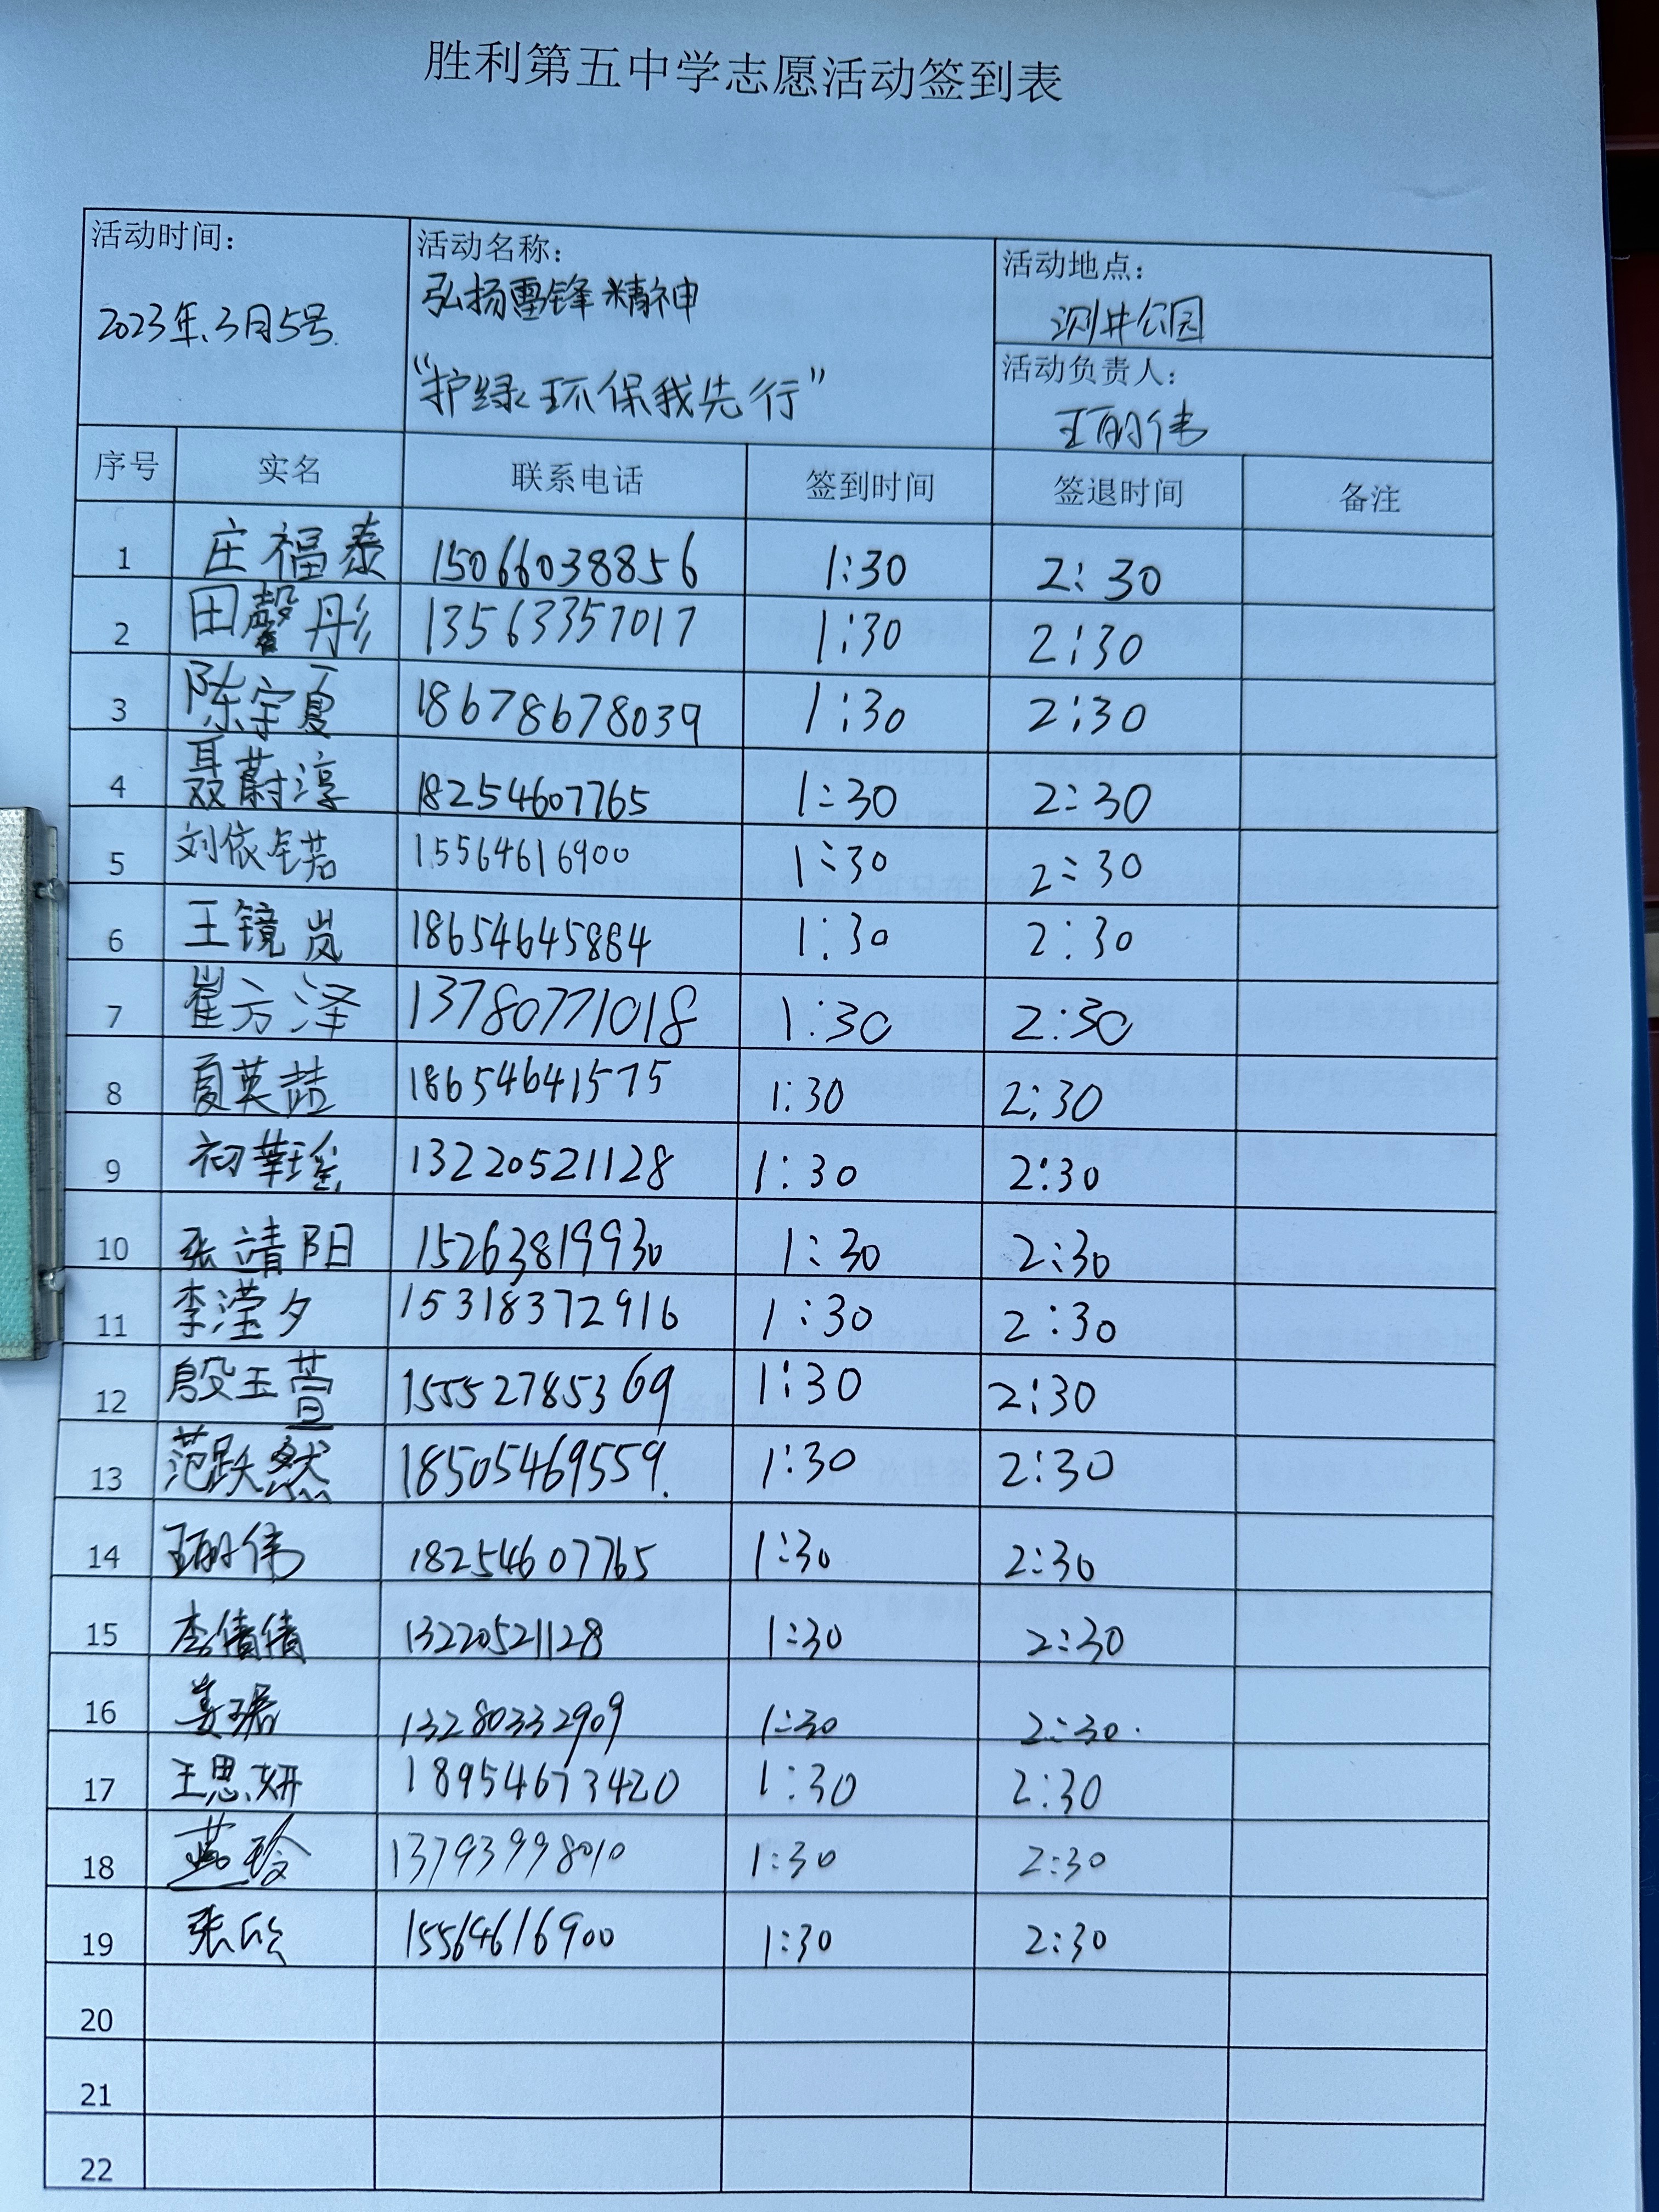 胜利第五中学志愿活动签到表
活动时间：
2023年.3月5号.
活动名称：
弘扬雷锋精神
“护绿环保我先行”
活动地点：
测井公园
活动负责人：
王丽伟
序号 实名 联系电话 签到时间 签退时间 备注
1 庄福泰 15066038856 1:30 2:30
2 田馨彤 13563357017 1:30 2:30
3 陈宇夏 18678678039 1:30 2:30
4 聂蔚淳 18254607765 1:30 2:30
5 刘依诺 15564616900 1:30 2:30
6 王镜岚 18654645884 1:30 2:30
7 崔方泽 13780771018 1:30 2:30
8 夏英喆 18654641575 1:30 2:30
9 初華瑶 13220521128 1:30 2:30
10 张靖阳 15263819930 1:30 2:30
11 李滢夕 15318372916 1:30 2:30
12 殷玉萱 15552785369 1:30 2:30
13 范跃然 18505469559. 1:30 2:30
14 王丽伟 18254607765 1:30 2:30
15 李倩倩 13220521128 1:30 2:30
16 姜琚 13280332909 1:30 2:30.
17 王思妍 18954673420 1:30 2:30
18 玲 13793998010 1:30 2:30
19 张欣 15564616900 1:30 2:30
20
21
22